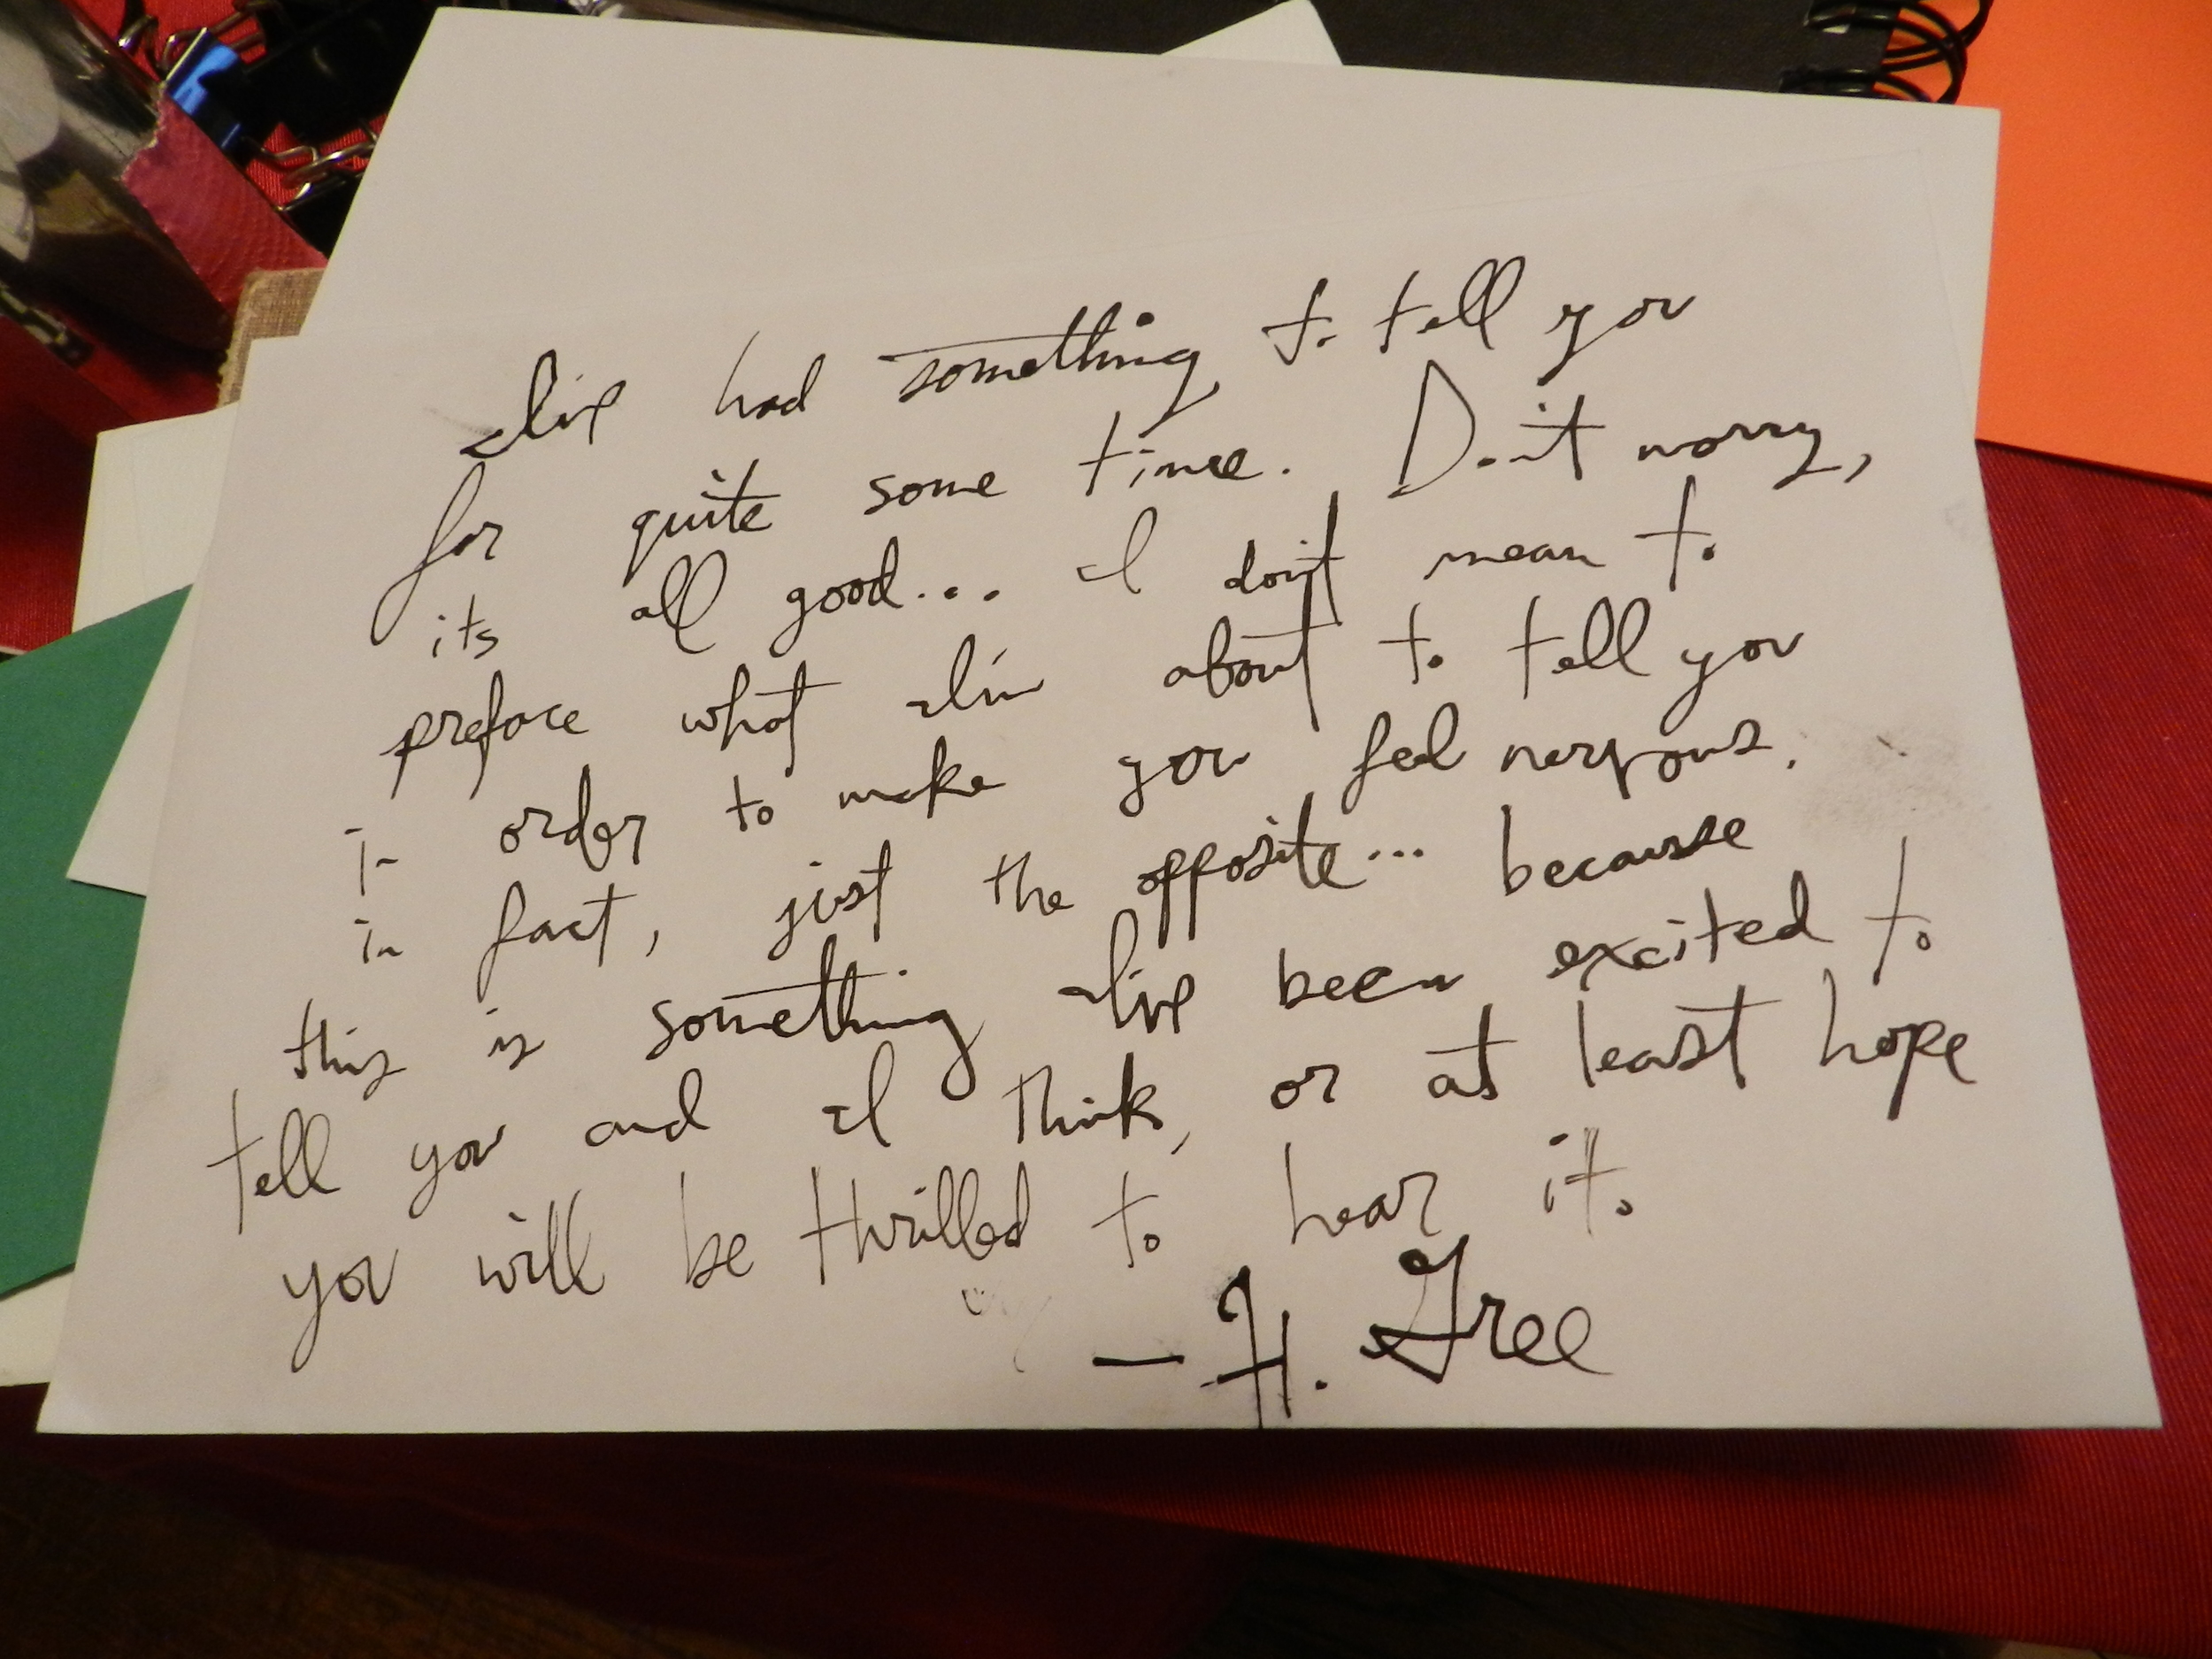 I've had something to tell you
for quite some time. Don't worry,
its all good... I don't mean to
preface what I'm about to tell you
in order to make you feel nervous,
in fact, just the opposite... because
this is something I've been excited to
tell you and I think, or at least hope
you will be thrilled to hear it.
— H. Gree